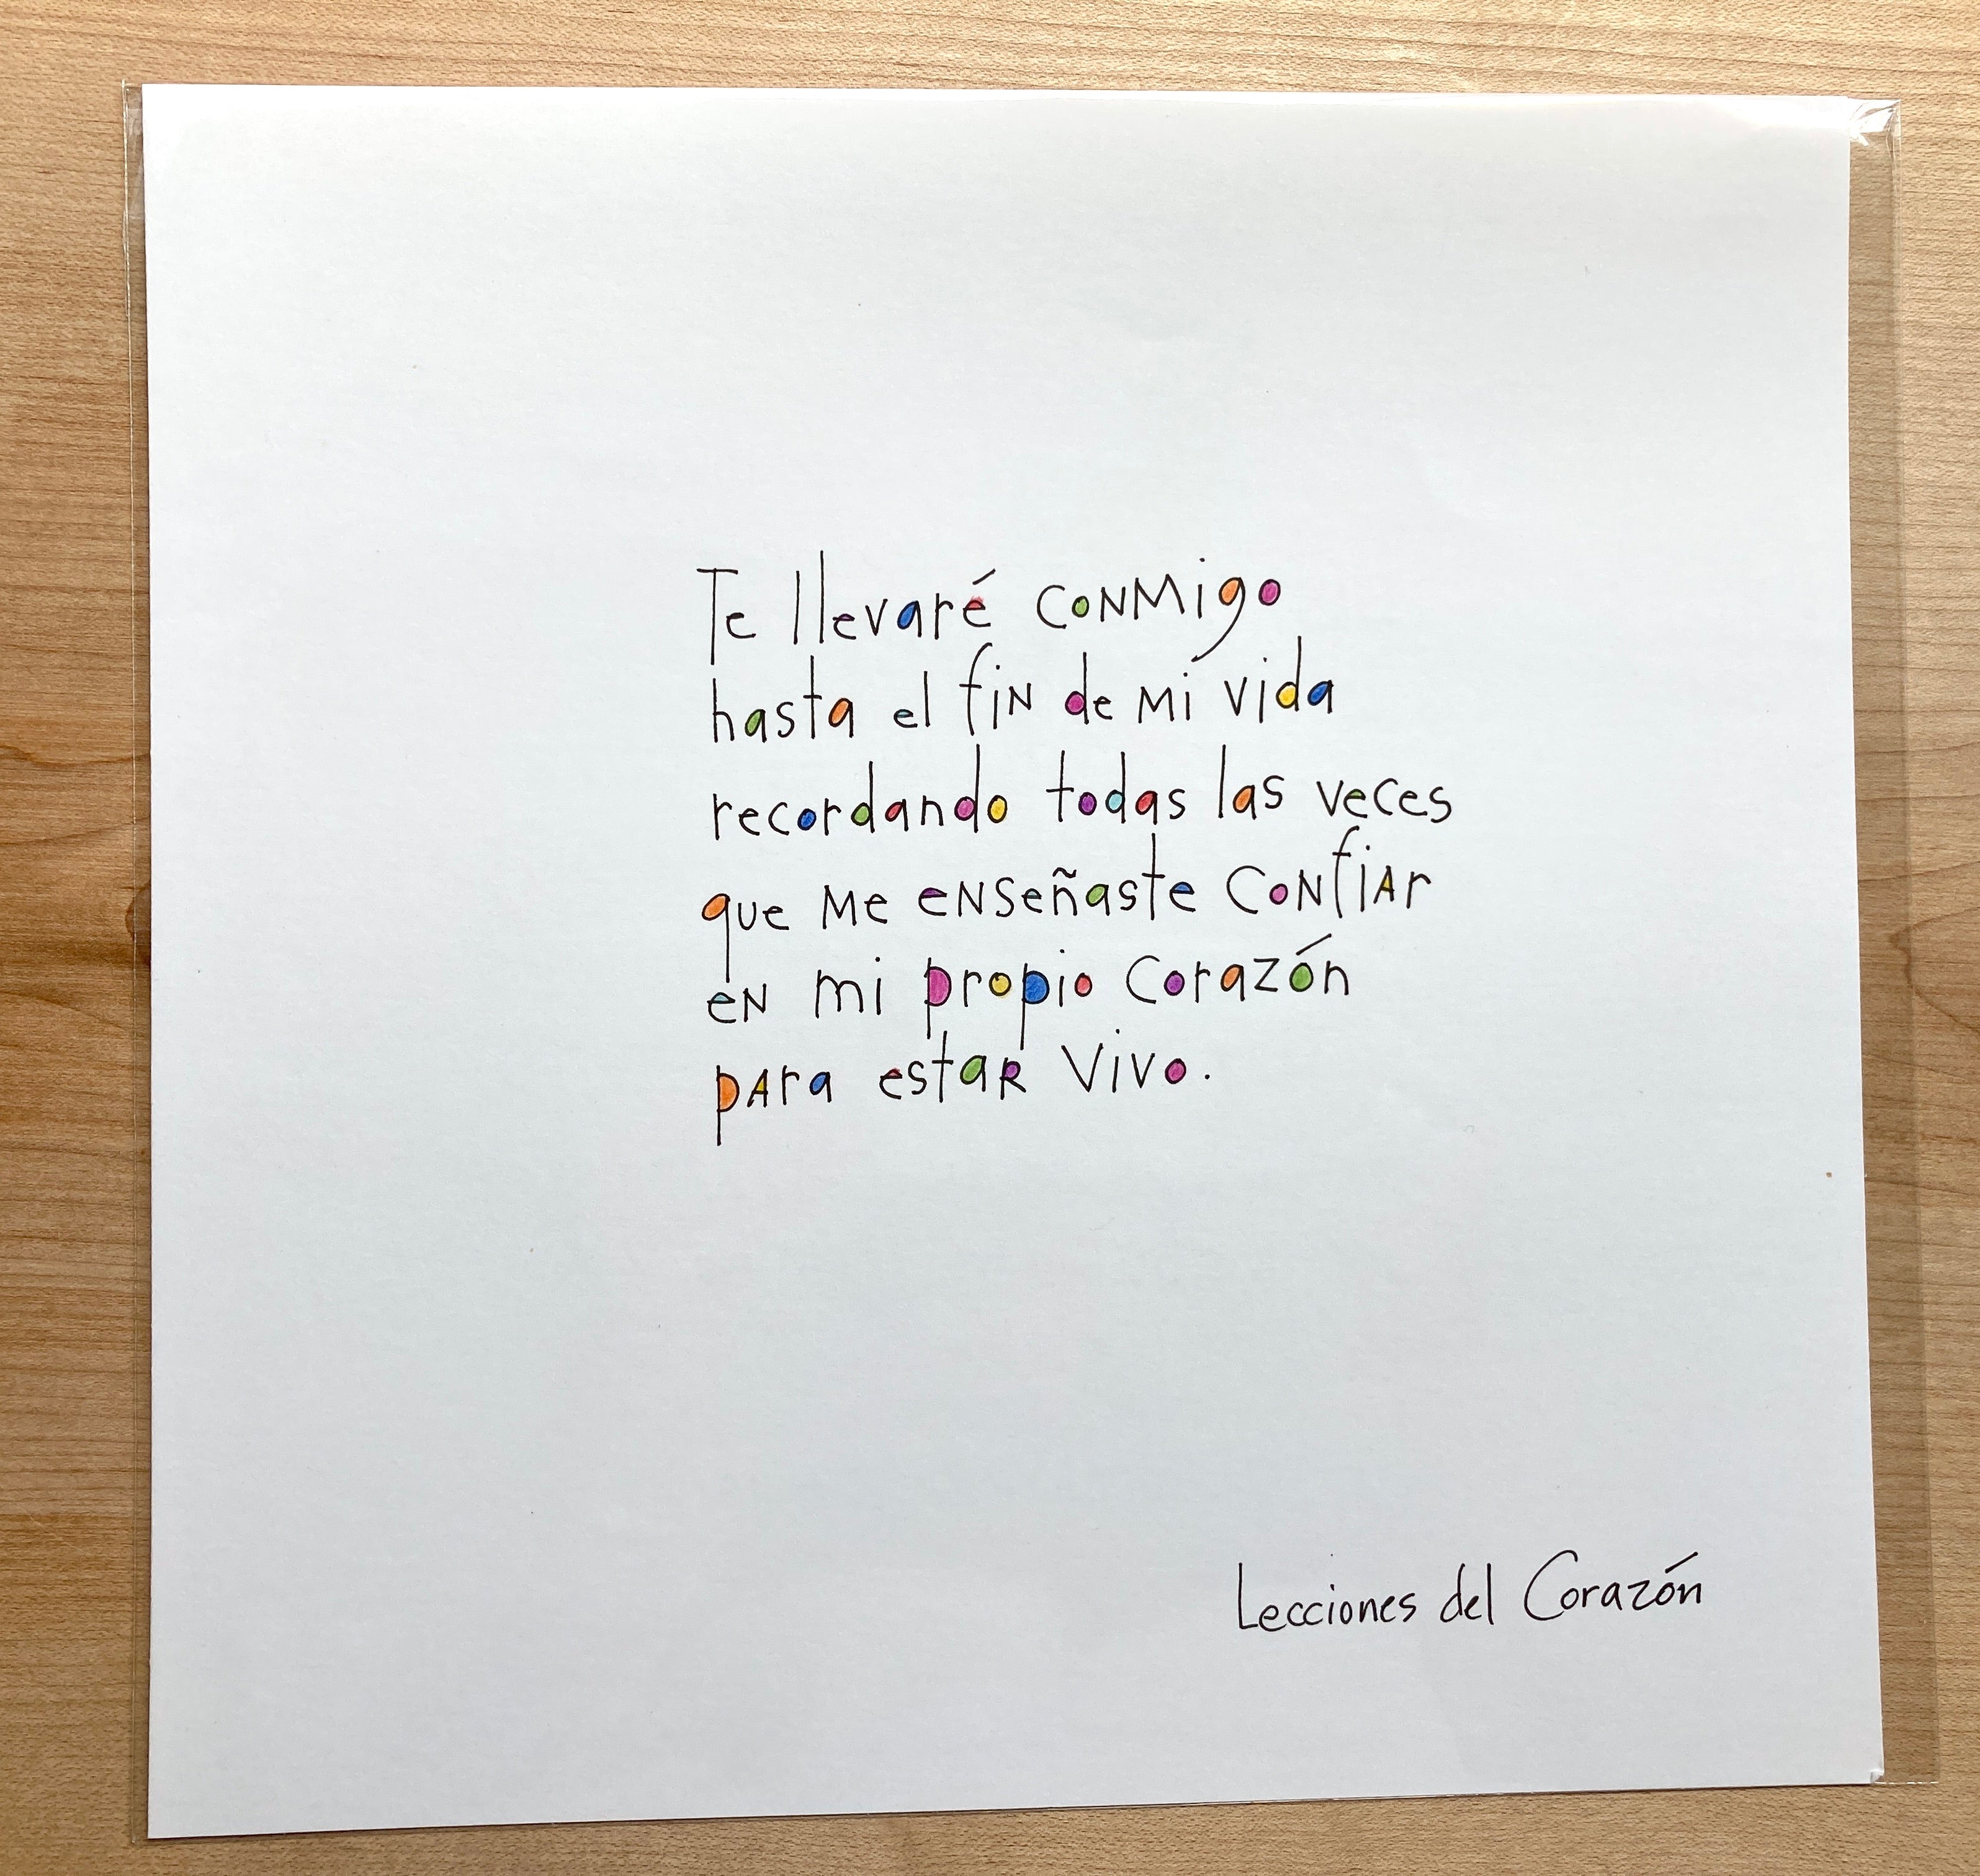 Te llevaré conmigo
hasta el fin de mi vida
recordando todas las veces
que me enseñaste confiar
en mi propio corazón
para estar vivo.
Lecciones del Corazón